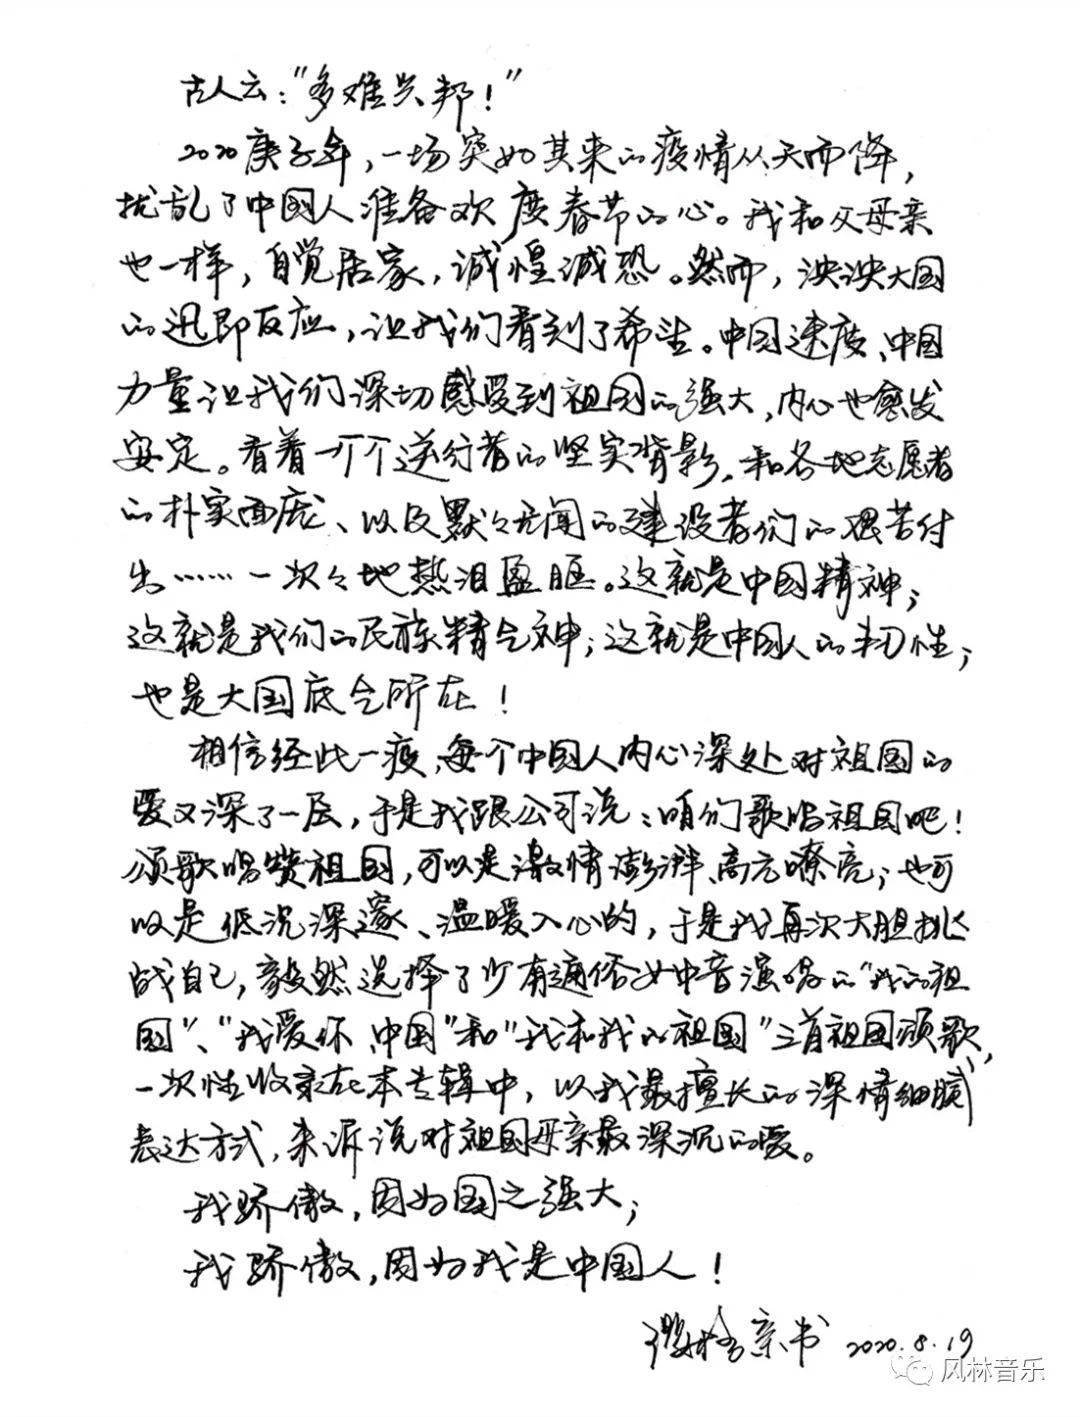 古人云："多难兴邦！"
2020庚子年，一场突如其来的疫情从天而降，
扰乱了中国人准备欢度春节的心。我和父母亲
也一样，自觉居家，诚惶诚恐。然而，泱泱大国
的迅即反应，让我们看到了希望。中国速度、中国
力量让我们深切感受到祖国的强大，内心也愈发
安定。看着一个个逆行者的坚实背影，和各地志愿者
的朴实面庞、以及默々无闻的建设者们的艰苦付
出……一次々地热泪盈眶。这就是中国精神；
这就是我们的民族精气神；这就是中国人的韧性；
也是大国底气所在！
相信经此一疫，每个中国人内心深处对祖国的
爱又深了一层，于是我跟公司说：咱们歌唱祖国吧！
颂歌唱赞祖国，可以是激情澎湃、高亢嘹亮；也可
以是低沉深邃、温暖入心的，于是我再次大胆挑
战自己，毅然选择了少有通俗女中音演唱的"我的祖
国"、"我爱你、中国"和"我和我的祖国"三首祖国颂歌，
一次性收录在本专辑中，以我最擅长的深情细腻
表达方式，来诉说对祖国母亲最深沉的爱。
我骄傲，因为国之强大；
我骄傲，因为我是中国人！
亲书 2020.8.19
风林音乐